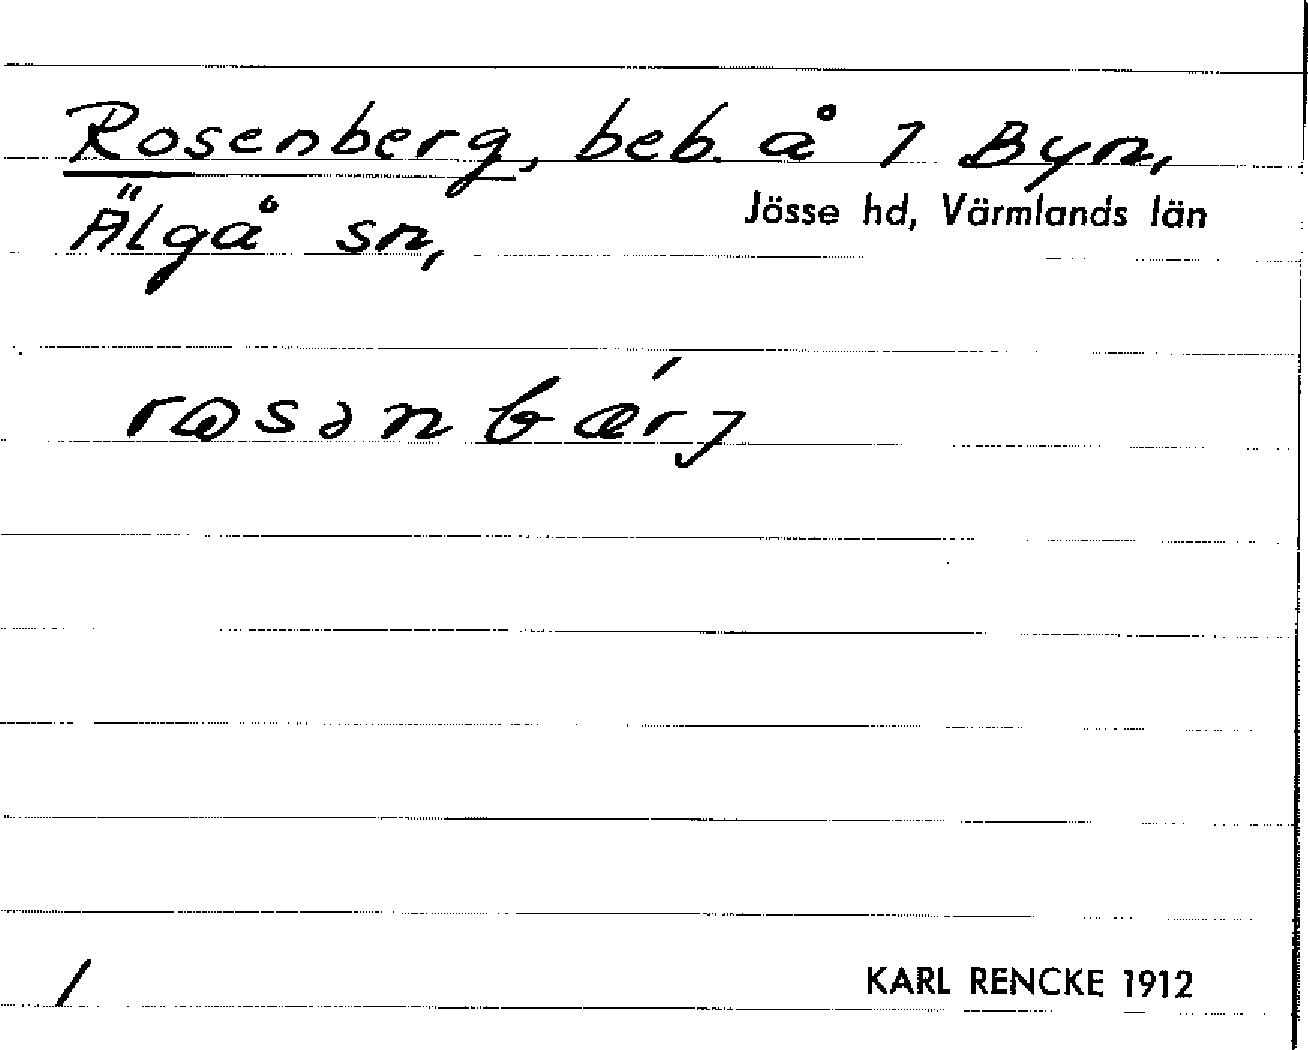 Rosenberg, beb. å 1 Byn,
Älgå sn,
Jösse hd, Värmlands län
rɷsənbær´j
/
KARL RENCKE 1912